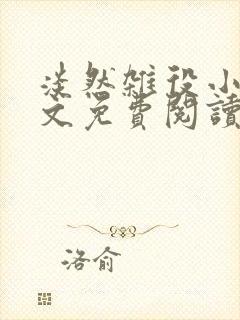 淡然雑役小
文免費閱讀
洛俞